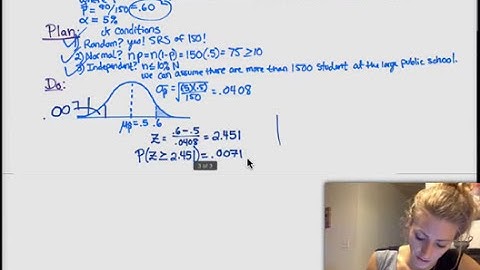 p̂ = 90/150 = .60
α = 5%
Plan: ck conditions
✓1) Random? yes! SRS of 150!
✓2) Normal? np = n(1-p) = 150(.5) = 75 ≥ 10
✓3) Independent? n ≤ 10% N
we can assume there are more than 1500 student at the large public school.
Do:
σp̂ = √(.5)(.5)/150 = .0408
.0071
μp̂ = .5 .6
z = .6-.5/.0408 = 2.451
P(z ≥ 2.451) = .0071